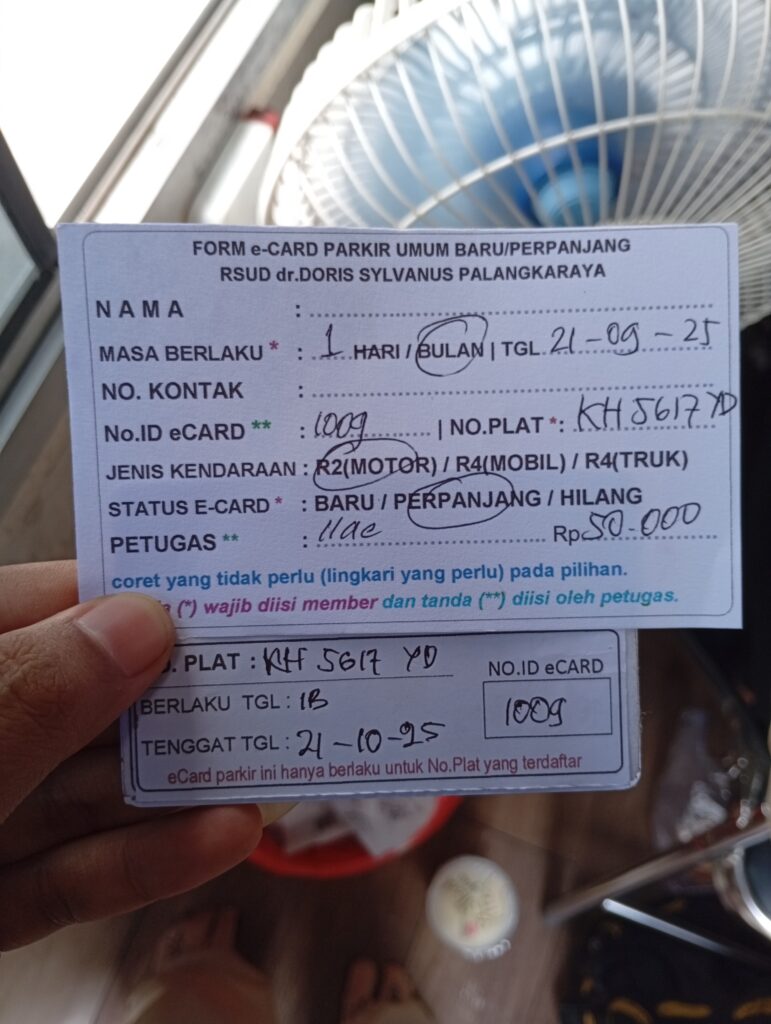 FORM e-CARD PARKIR UMUM BARU/PERPANJANG
RSUD dr.DORIS SYLVANUS PALANGKARAYA
N A M A :
MASA BERLAKU * : 1 HARI / BULAN | TGL 21-09-25
NO. KONTAK :
No.ID eCARD ** : 1009 | NO.PLAT *: KH 5617 YD
JENIS KENDARAAN : R2(MOTOR) / R4(MOBIL) / R4(TRUK)
STATUS E-CARD * : BARU / PERPANJANG / HILANG
PETUGAS ** : Rp 50.000
coret yang tidak perlu (lingkari yang perlu) pada pilihan.
(*) wajib diisi member dan tanda (**) diisi oleh petugas.
. PLAT : KH 5617 YD NO.ID eCARD
BERLAKU TGL : 1B 1009
TENGGAT TGL : 21-10-25
eCard parkir ini hanya berlaku untuk No.Plat yang terdaftar